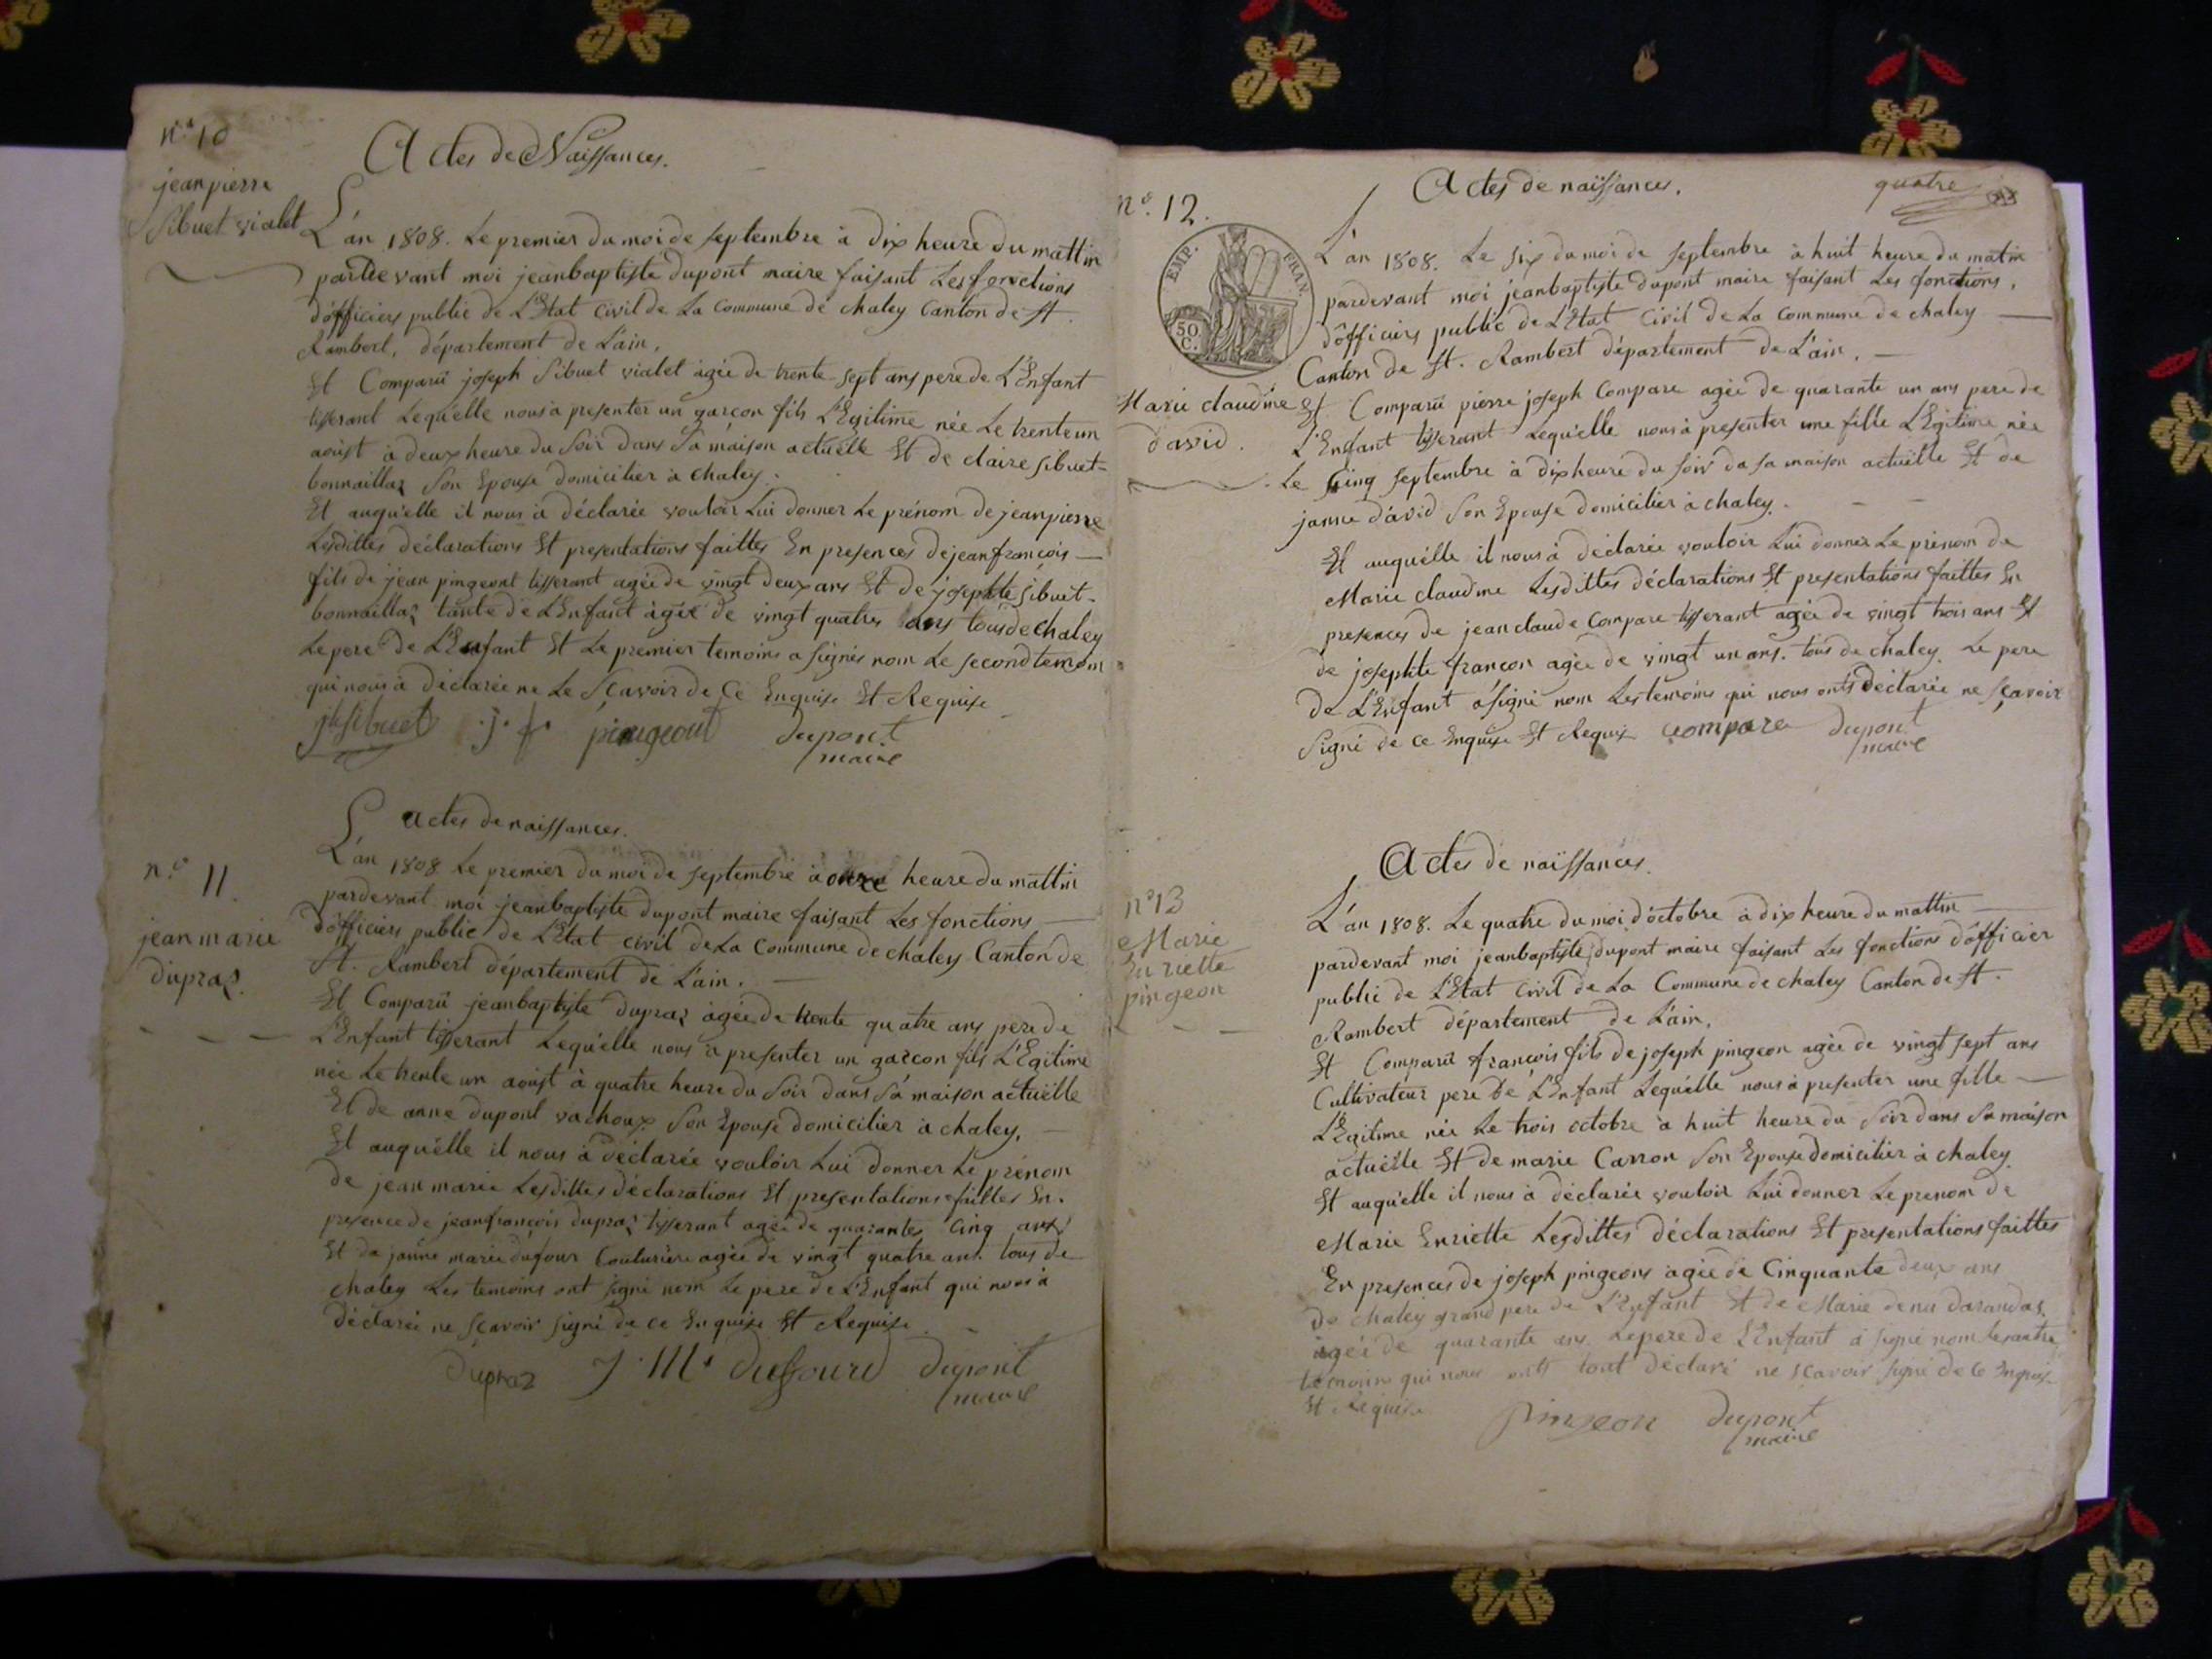 n.° 10
Actes de Naissances.
jean pierre
Sibuet vialet
L'an 1808. Le premier du moi de septembre à dix heure du mattin
pardevant moi jeanbaptiste dupont maire faisant Les fonctions
d'officiers public de L'Etat Civil de La Commune de chaley Canton de st.
Rambert, département de L'ain.
Et Comparü joseph Sibuet vialet agée de trente sept ans pere de L'Enfant
tisserant Lequ'elle nous à presenter un garçon fils L'Egitime née Le trente un
aoust à deux heure du Soir dans Sa maison actuëlle Et de claire sibuet-
bonnaillaz Son Epouse domicilier à chaley.
Et auqu'elle il nous à déclarée vouloir Lui donner Le prénom de jeanpierre
Lesdittes déclarations Et presentations faittes En presences de jeanfrancois
fils de jean pingeont tisserant agée de vingt deux ans Et de josephte sibuet-
bonnaillaz tante de L'Enfant agée de vingt quatres ans tous de chaley
Le pere de L'Enfant Et Le premier temoins a signés nom Le second temoin
qui nous à déclarée ne Le Sçavoir de Ce Enquise Et Requise
jh sibuet j. f. pingeont dupont
maire
Actes de naissances.
n.° 11.
jean marie
dupraz.
L'an 1808 Le premier du moi de septembre à onze heure du mattin
pardevant moi jeanbaptiste dupont maire faisant Les fonctions
d'officiers public de L'Etat civil de La Commune de chaley Canton de
st. Rambert département de L'ain.
Et Comparü jeanbaptiste dupraz agée de trente quatre ans pere de
L'Enfant tisserant Lequ'elle nous à presenter un garcon fils L'Egitime
née Le trente un aoust à quatre heure du Soir dans Sa maison actuëlle
Et de anne dupont vachoux Son Epouse domicilier à chaley.
Et auqu'elle il nous à déclarée vouloir Lui donner Le prénom
de jean marie Lesdittes déclarations Et presentations faittes En
presence de jeanfrançois dupraz tisserant agée de quarantes cinq ans
Et de janne marie dufour Couturière agée de vingt quatre ans. tous de
chaley Les temoins ont signé nom Le pere de L'Enfant qui nous à
déclarée ne Scavoir signé de ce Enquise Et Requise.
dupraz J. M. duffourd dupont
maire
Actes de naïssances.
quatre
n.° 12.
EMP. FRAN.
50
C.
Marie claudine
david.
L'an 1808. Le six du moi de septembre à huit heure du matin
pardevant moi jeanbaptiste dupont maire faisant Les fonctions.
d'officiers public de L'Etat Civil de La Commune de chaley
Canton de st. Rambert département de L'ain.
Et Comparü pierre joseph Compare agée de quarante un ans pere de
L'Enfant tisserant Lequ'elle nous à presenter une fille L'Egitime née
Le Cinq septembre à dix heure du soir da sa maison actuëlle Et de
janne david Son Epouse domicilier à chaley.
Et auquélle il nous à déclarée vouloir Lui donner Le prénom de
Marie claudine Lesdittes déclarations Et presentations faittes En
presences de jean claude Compare tisserant agée de vingt trois ans Et
de josephte françon agée de vingt un ans. tous de chaley. Le pere
de L'Enfant à signé nom Les temoins qui nous onts déclarée ne sçavoir
Signé de ce Enquise Et Requise compare dupont
maire
Actes de naïssances.
n° 13
Marie
Enriette
pingeon
L'an 1808. Le quatre du moi d'octobre à dix heure du mattin
pardevant moi jeanbaptiste dupont maire faisant Les fonctions d'officier
public de L'Etat Civil de La Commune de chaley Canton de st.
Rambert département de L'ain.
Et Comparü françois fils de joseph pingeon agée de vingt sept ans
Cultivateur pere de L'Enfant Lequélle nous à presenter une fille
L'Egitime née Le trois octobre à huit heure du Soir dans Sa maison
actuëlle Et de marie Carron Son Epouse domicilier à chaley.
Et auqu'elle il nous à déclarée vouloir Lui donner Le prenom de
Marie Enriette Lesdittes déclarations Et presentations faittes
En presences de joseph pingeons agée de Cinquante deux ans
de chaley grand pere de L'Enfant Et de Marie darandas
agée de quarante ans Le pere de L'Enfant à signé nom Les autre
temoins qui nous onts tout déclaré ne scavoir signé de ce Enquise
Et Requise pingeon dupont
maire